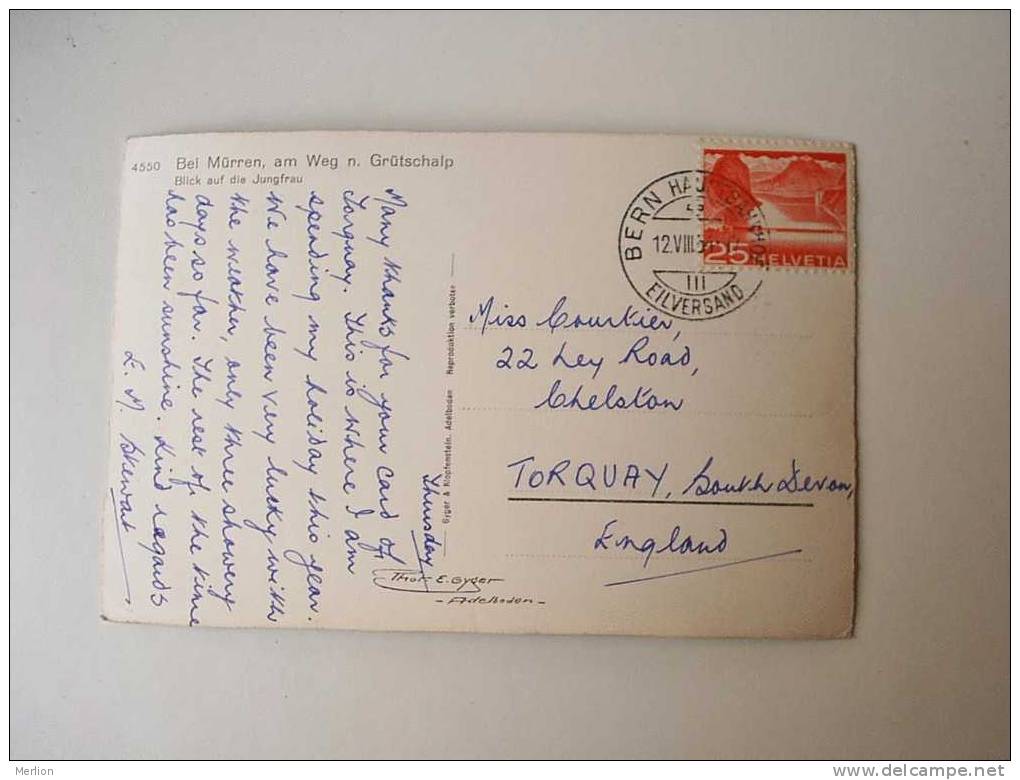 4550 Bei Mürren, am Weg n. Grütschalp
Blick auf die Jungfrau
Thursday
Many thanks for your card of
Torquay. This is where I am
spending my holiday this year.
We have been very lucky with
the weather, only three showery
days so far. The rest of the time
has been sunshine. Kind regards
E. M. Stewart
Gyger & Klopfenstein, Adelboden Reproduktion verboten
Phot E. Gyger
- Adelboden -
BERN
12.VIII
III
EILVERSAND
25 HELVETIA
Miss Courtier,
22 Ley Road,
Chelston
TORQUAY, South Devon,
England
Merlion
www.delcampe.net